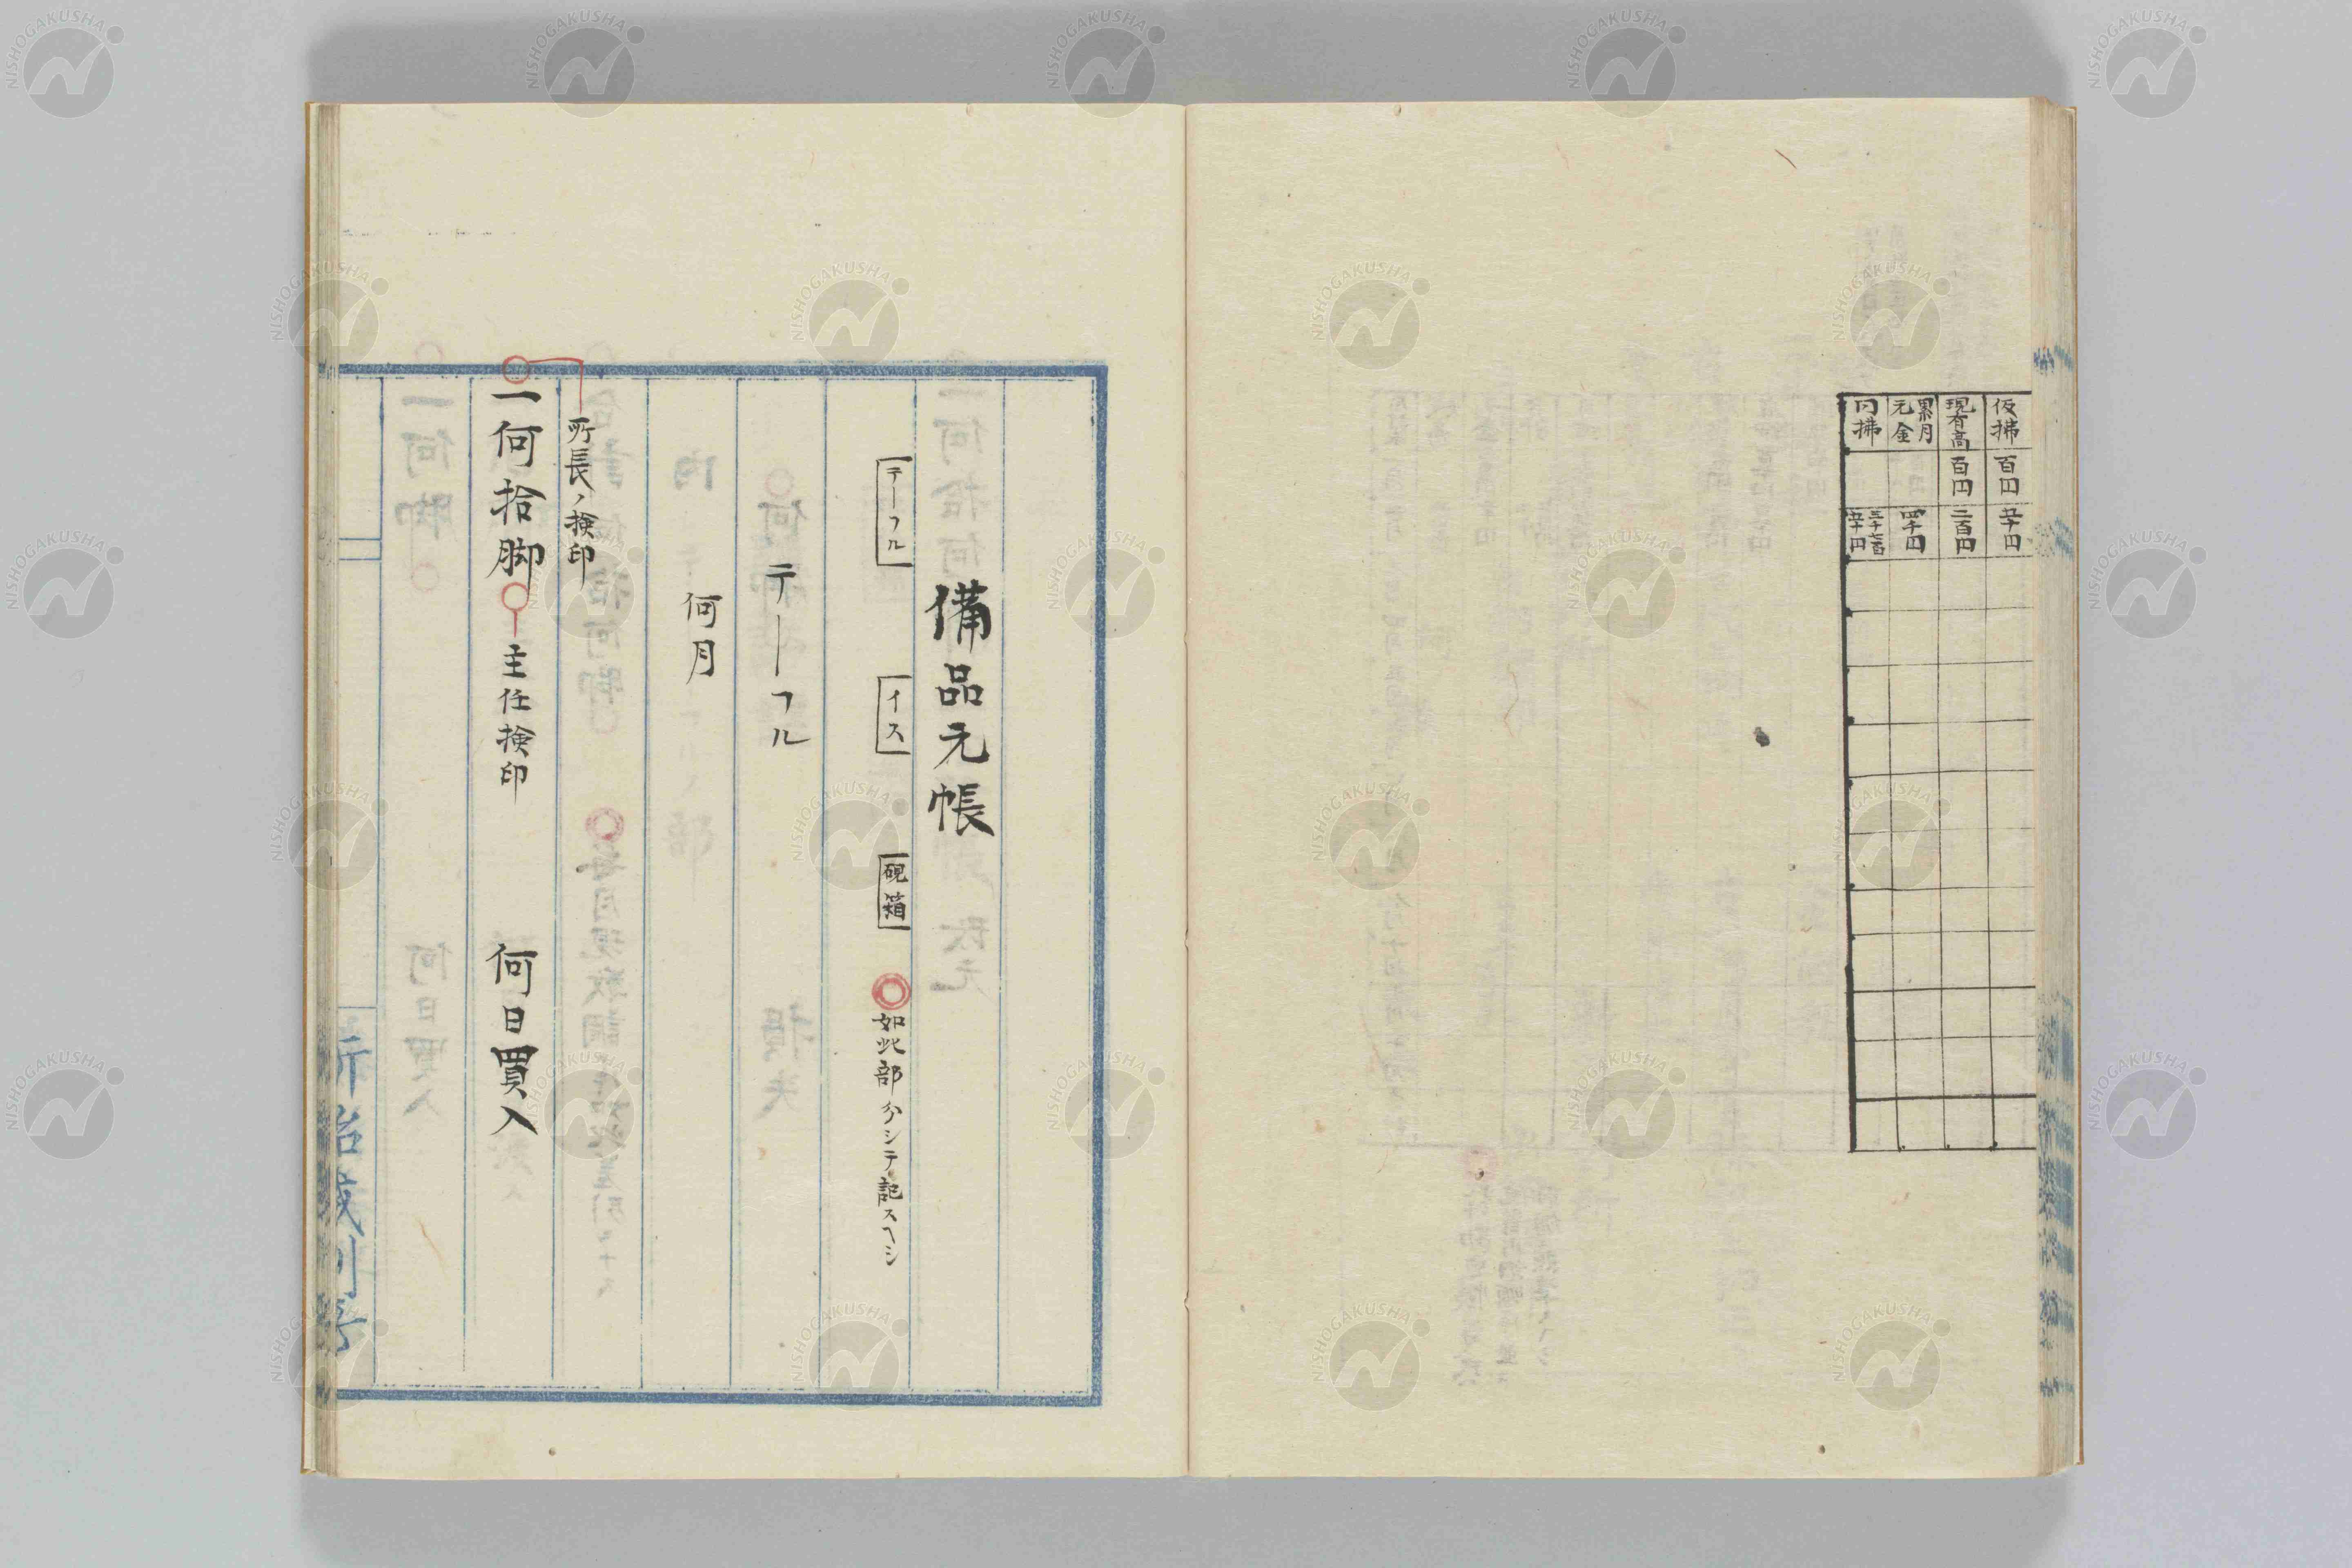 仮拂 百円 五十円
現有高 百円 二百円
累月元金 四千円
内拂 三千七百五十円
備品元帳
テーフル イス 硯箱 ◎如此部分シテ記スヘシ
テーフル
何月
所長ノ検印
○一何拾脚○主任検印 何日買入
NISHOGAKUSHA